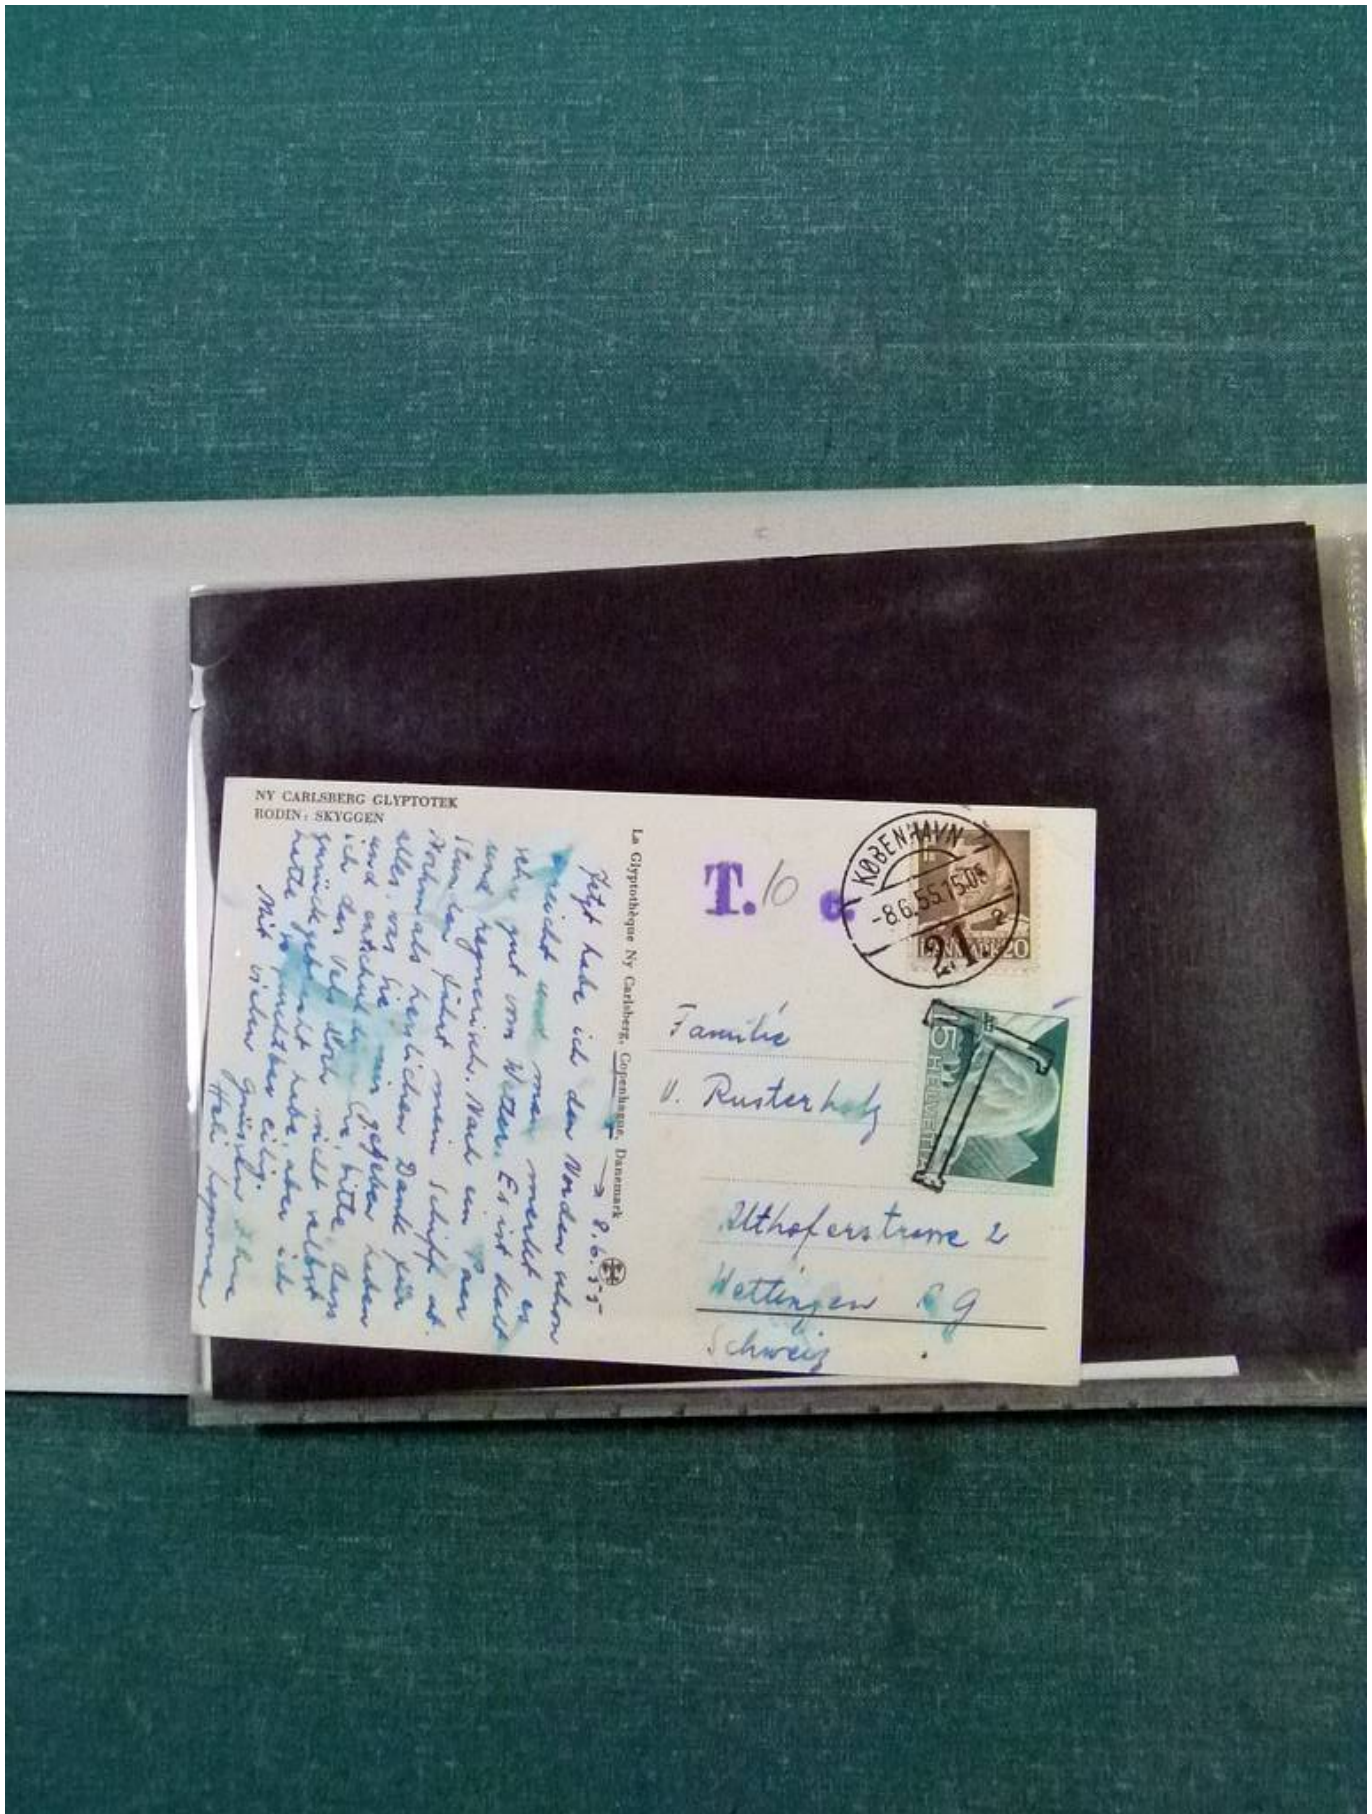 NY CARLSBERG GLYPTOTEK
RODIN: SKYGGEN
La Glyptothèque Ny Carlsberg, Copenhague, Danemark
8.6.55
Jetzt habe ich den Norden schon
erreicht und man merkt es
sehr gut vom Wetter. Es ist kalt
und regnerisch. Nach ein paar
Stunden fährt mein Schiff ab.
Nochmals herzlichen Dank für
alles, was Sie mir gegeben haben
und entschuldigen Sie, bitte, dass
ich das Velo doch nicht selbst
zurückgebracht habe, aber ich
hatte so furchtbar eilig.
Mit vielen Grüssen Ihre
Heli
T. 10 c.
KØBENHAVN
-8.6.55.15
21.
DANMARK 20
15 HELVETIA
T
Familie
V. Rusterholz
Althoferstrasse 2
Wettingen
Schweiz